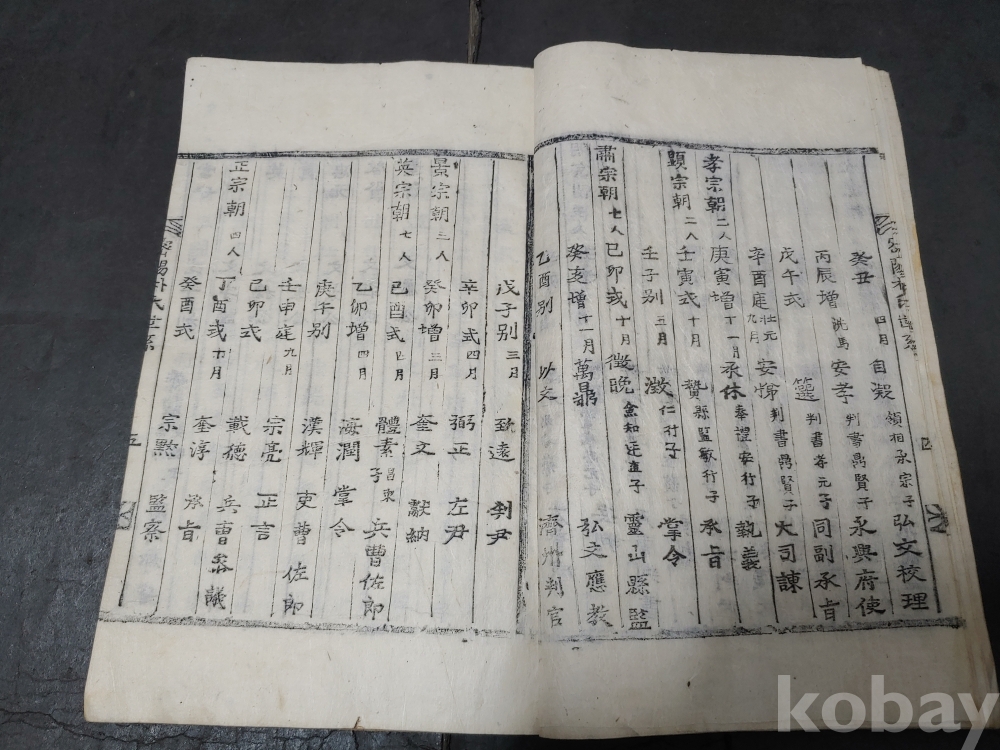 癸丑 四月 自凝 領相承宗子 弘文校理
丙辰增 洗馬 安孝 判書鼎賢子 永興府使
戊午式 筵 判書孝元子 同副承旨
辛酉庭 壯元 九月 安悌 判書鼎賢子 大司諫
孝宗朝 二人 庚寅增 十一月 承休 奉禮安行子 執義
壬寅式 十月 贊 縣監敏行子 承旨
顯宗朝 二人 壬子別 三月 澂 仁行子 掌令
肅宗朝 七人 己卯式 十月 徵晚 僉知廷直子 靈山縣監
癸亥增 十一月 萬鼎 弘文應教
乙酉別 以文 濟州判官
戊子別 三月 致遠 判尹
辛卯式 四月 弼正 左尹
景宗朝 三人 癸卯增 三月 奎文 獻納
英宗朝 七人 己酉式 四月 體素 昌東子 兵曹佐郎
乙卯增 四月 海潤 掌令
庚午別 漢輝 吏曹佐郎
壬申庭 九月 宗亮 正言
己卯式 載德 兵曹參議
正宗朝 四人 丁酉式 十月 奎淳 承旨
癸酉式 宗黙 監察
五
kobay